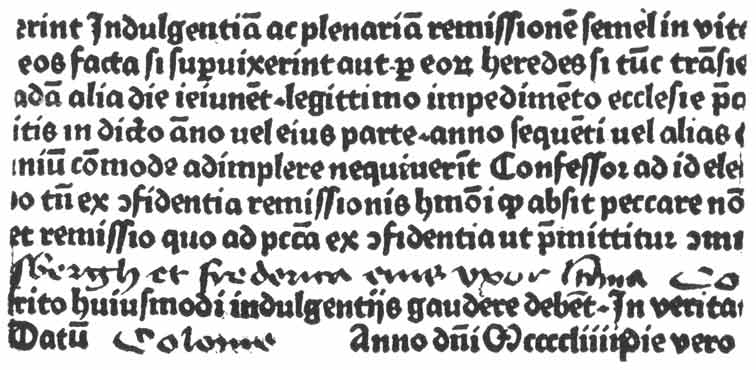 erint Indulgentiā ac plenariā remissionē semel in vita
eos facta si supuixerint aut ꝑ eoꝝ heredes si tūc trāsie
adā alia die ieiunēt. legittimo impedimēto ecclesie p̄c
itis in dicto āno uel eius parte. anno sequēti uel alias
niū cōmode adimplere nequiuerīt Confessor ad id ele
o tn̄ ex ɔfidentia remissionis hm̄oi ꝙ absit peccare nō
et remissio quo ad pccā ex ɔfidentia ut p̄mittitur ɔmi
bergh et frederica eius vxor
rito huiusmodi indulgentijs gaudere debēt. In verita
Datū Colonie Anno dn̄i Mccccliiii Die vero